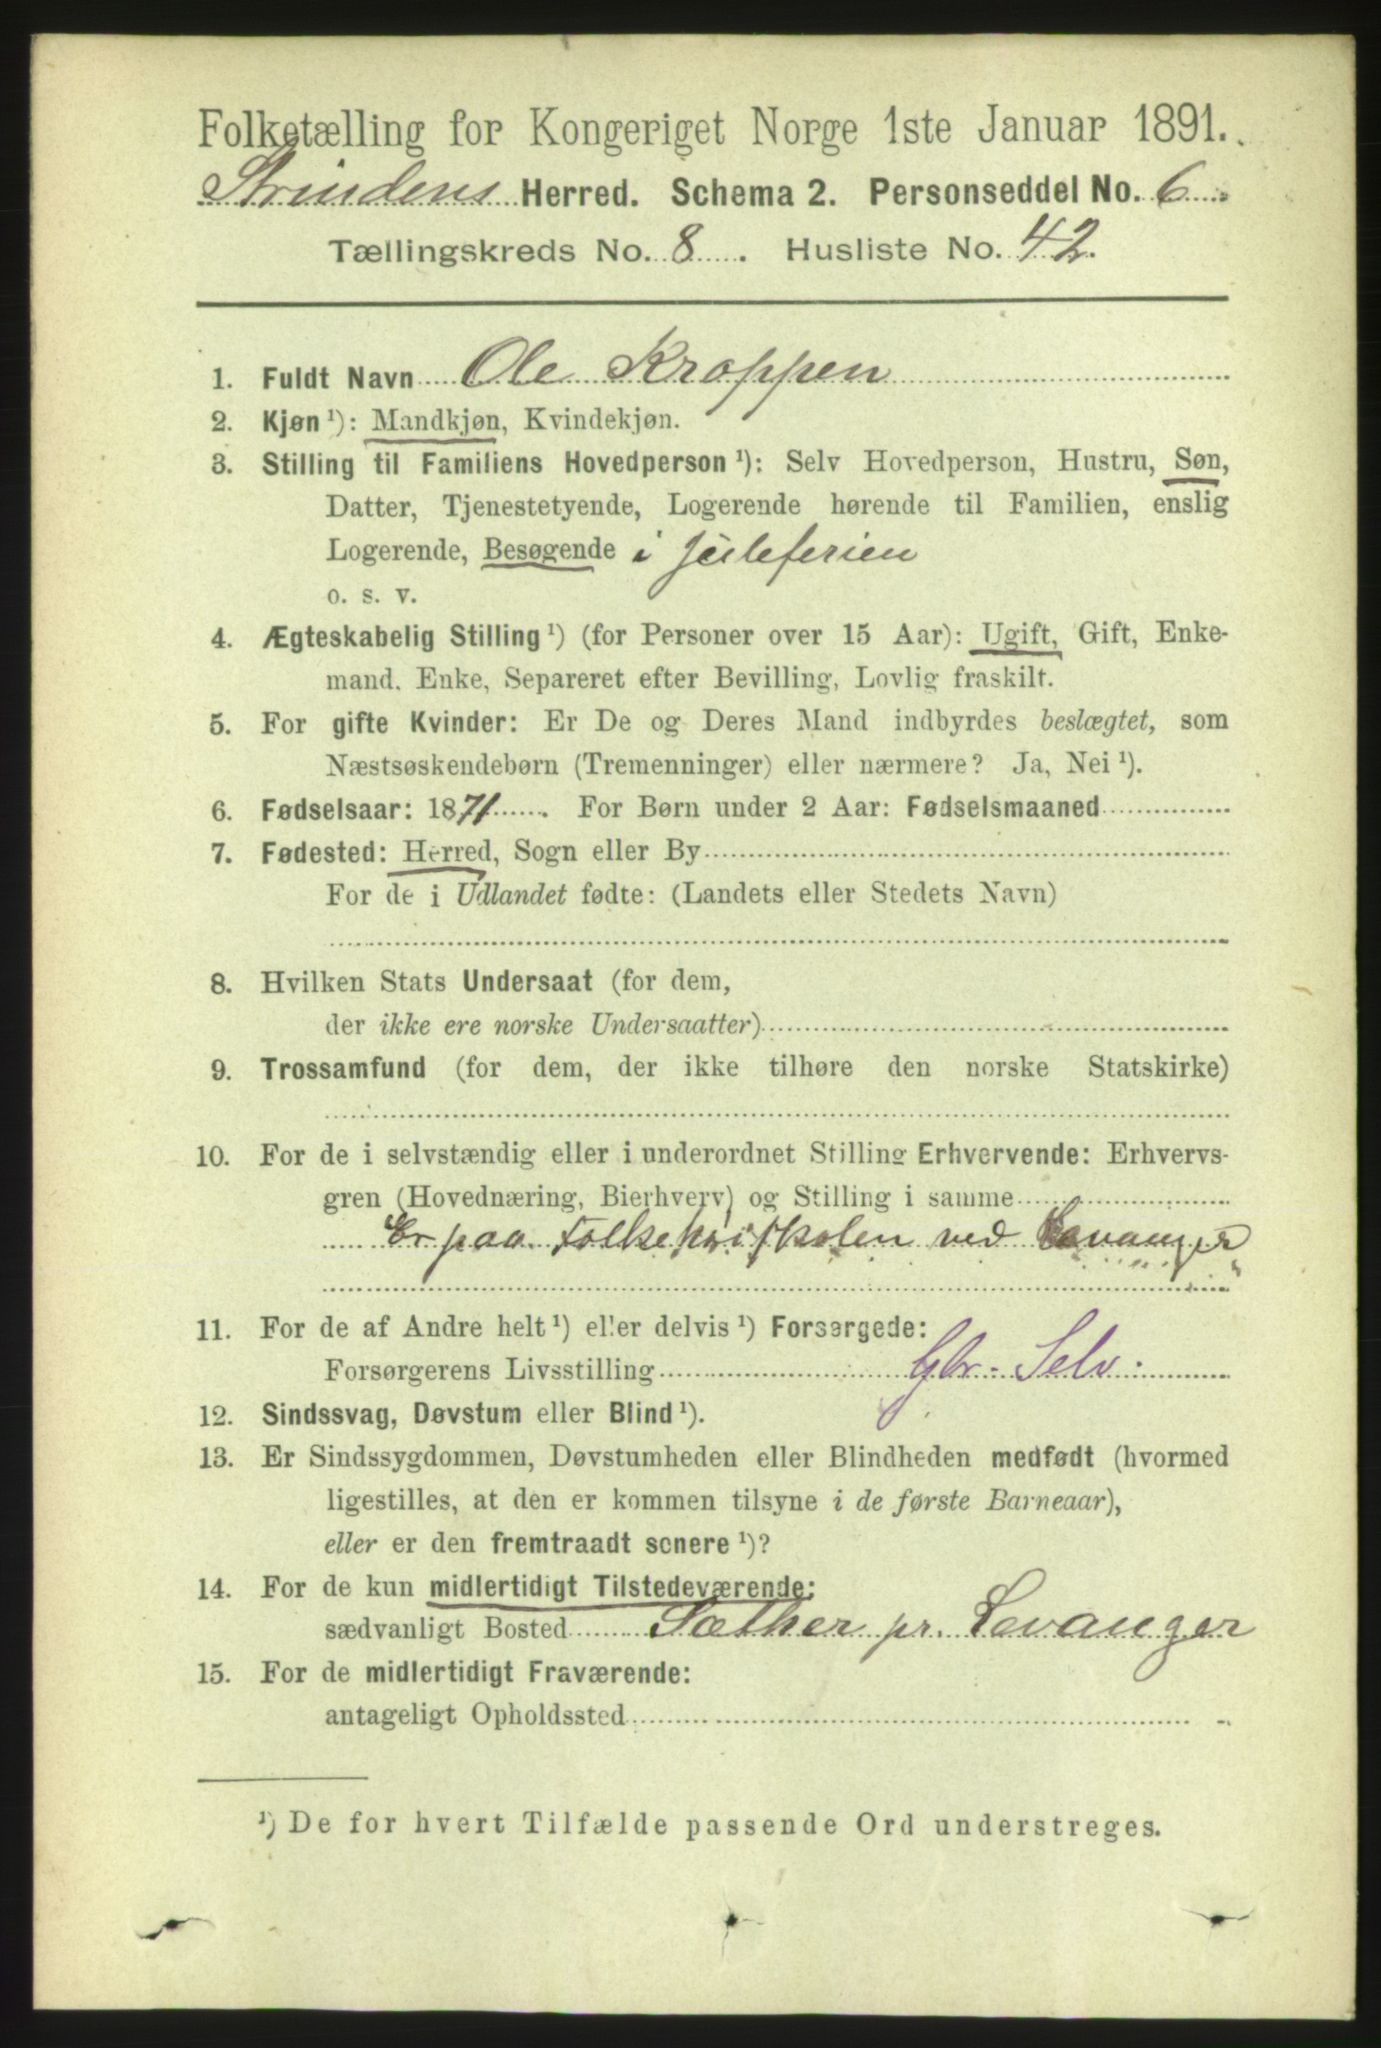 Folketælling for Kongeriget Norge 1ste Januar 1891.
Strindens Herred. Schema 2. Personseddel No. 6.
Tællingskreds No. 8. Husliste No. 42.
1. Fuldt Navn Ole Kroppen
2. Kjøn ¹): Mandkjøn, Kvindekjøn.
3. Stilling til Familiens Hovedperson ¹): Selv Hovedperson, Hustru, Søn,
Datter, Tjenestetyende, Logerende hørende til Familien, enslig
Logerende, Besøgende i Juleferien
o. s. v.
4. Ægteskabelig Stilling ¹) (for Personer over 15 Aar): Ugift, Gift, Enke-
mand, Enke, Separeret efter Bevilling, Lovlig fraskilt.
5. For gifte Kvinder: Er De og Deres Mand indbyrdes beslægtet, som
Næstsøskendebørn (Tremenninger) eller nærmere? Ja, Nei ¹).
6. Fødselsaar: 1871. For Børn under 2 Aar: Fødselsmaaned
7. Fødested: Herred, Sogn eller By
For de i Udlandet fødte: (Landets eller Stedets Navn)
8. Hvilken Stats Undersaat (for dem,
der ikke ere norske Undersaatter)
9. Trossamfund (for dem, der ikke tilhøre den norske Statskirke)
10. For de i selvstændig eller i underordnet Stilling Erhvervende: Erhvervs-
gren (Hovednæring, Bierhverv) og Stilling i samme
Er paa Folkehøiskolen ved Levanger
11. For de af Andre helt ¹) eller delvis ¹) Forsørgede:
Forsørgerens Livsstilling Gbr. Selv.
12. Sindssvag, Døvstum eller Blind ¹).
13. Er Sindssygdommen, Døvstumheden eller Blindheden medfødt (hvormed
ligestilles, at den er kommen tilsyne i de første Barneaar),
eller er den fremtraadt senere ¹)?
14. For de kun midlertidigt Tilstedeværende:
sædvanligt Bosted Sæther pr. Levanger
15. For de midlertidigt Fraværende:
antageligt Opholdssted
¹) De for hvert Tilfælde passende Ord understreges.